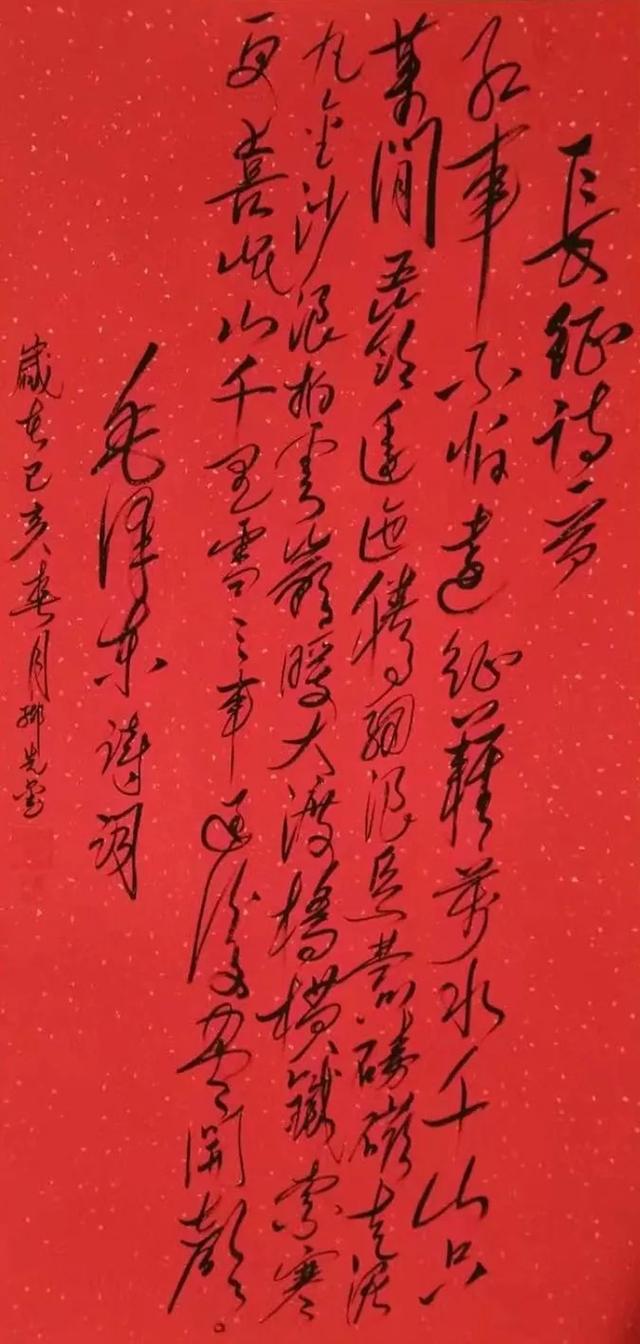 長征詩一首
红軍不怕遠征難萬水千山只
等閒五嶺逶迤騰細浪烏蒙磅礴走泥
丸金沙浪拍雲崖暖大渡橋横鐵索寒
更喜岷山千里雪三軍过後盡開顏。
毛澤東詩詞
歲在己亥春月